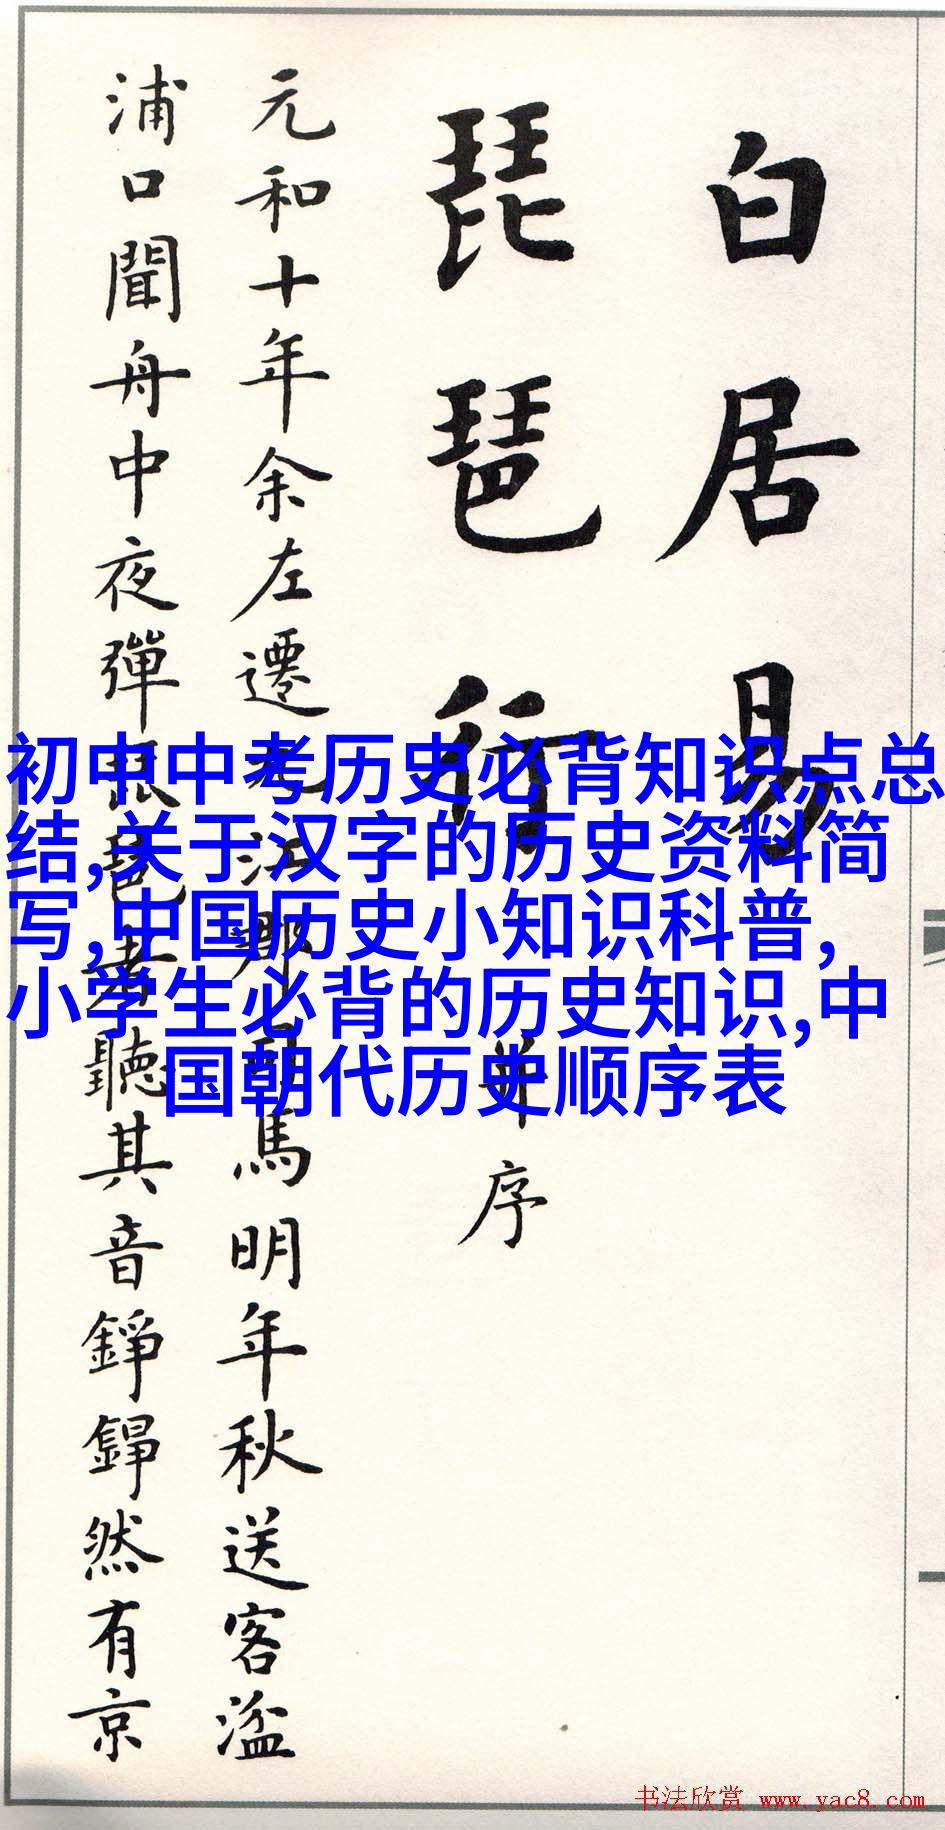 白居易
琵琶行
并序
元和十年余左遷九江郡司馬明年秋送客湓
浦口聞舟中夜彈琵琶者聽其音錚錚然有京
初中中考历史必背知识点总
结,关于汉字的历史资料简
写,中国历史小知识科普,
小学生必背的历史知识,中
国朝代历史顺序表
书法欣赏 www.yac8.com